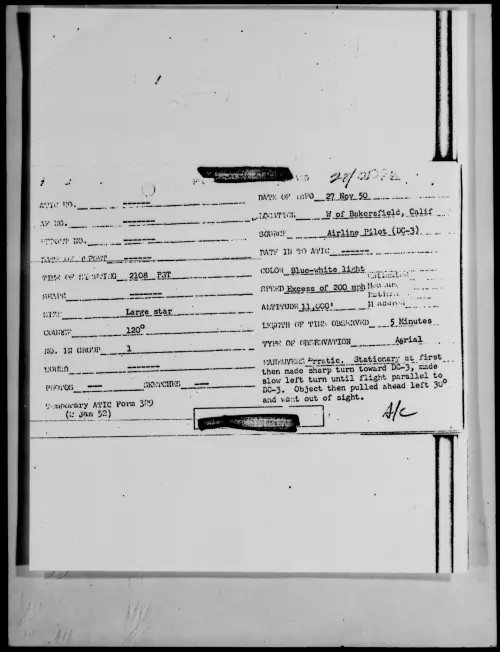 ATIC NO. -------
AF NO. -------
REPORT NO. -------
DATE OF REPORT ------
TIME OF SIGHTING 2108 PST
SHAPE -------
SIZE Large star
COURSE 120°
NO. IN GROUP 1
SOUND -------
PHOTOS --- SKETCHES ---
Temporary ATIC Form 329
(2 Jan 52)
DATE OF INFO 27 Nov 50
LOCATION W of Bakersfield, Calif
SOURCE Airline Pilot (DC-3)
DATE IN TO ATIC ------
COLOR Blue-white light
SPEED Excess of 200 mph
ALTITUDE 11,000'
LENGTH OF TIME OBSERVED 5 Minutes
TYPE OF OBSERVATION Aerial
MANEUVERS Erratic. Stationary at first
then made sharp turn toward DC-3, made
slow left turn until flight parallel to
DC-3. Object then pulled ahead left 30°
and went out of sight.
A/c